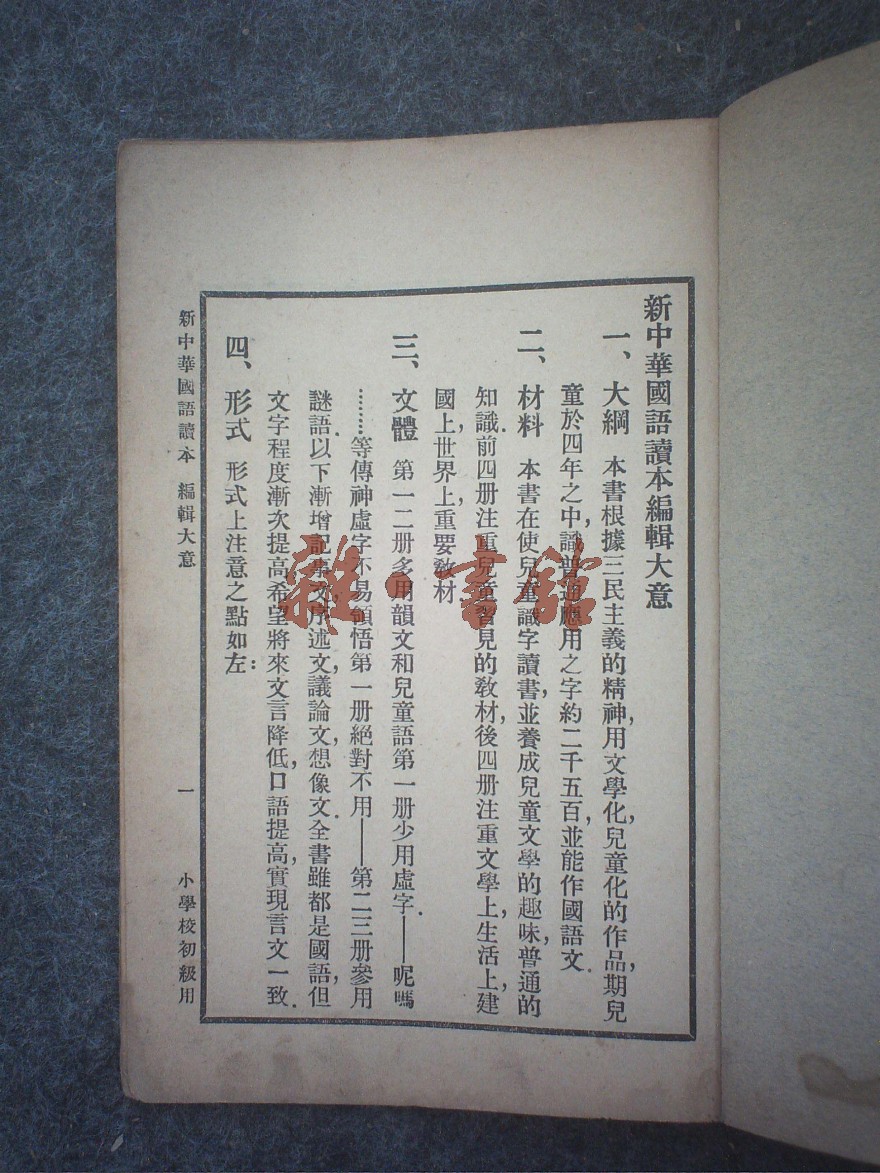 新中華國語讀本編輯大意
一、大綱 本書根據三民主義的精神,用文學化兒童化的作品,期兒
童於四年之中,識普通應用之字約二千五百,並能作國語文.
二、材料 本書在使兒童識字讀書,並養成兒童文學的趣味,普通的
知識.前四册注重兒童習見的教材,後四册注重文學上,生活上,建
國上,世界上,重要教材
三、文體 第一二册多用韻文和兒童語.第一册少用虛字.——呢嗎
………等傳神虛字不易領悟,第一册絕對不用——第二三册參用
謎語.以下漸增記事文,序述文,議論文,想像文.全書雖都是國語,但
文字程度漸次提高,希望將來文言降低,口語提高,實現言文一致.
四、形式 形式上注意之點如左:
新中華國語讀本 編輯大意
一
小學校初級用
雜·書館